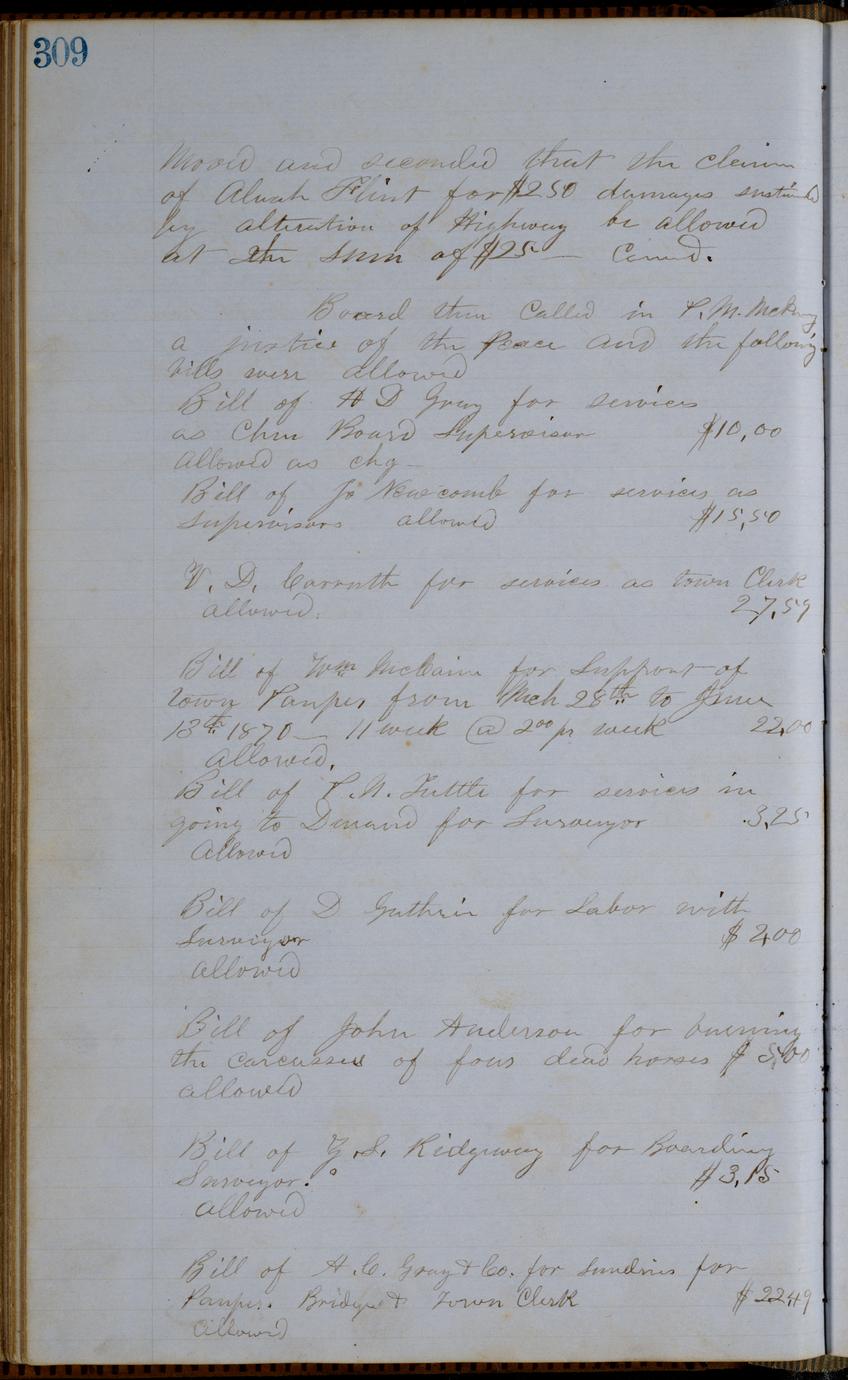 309
Moved and seconded that the claim
of Alvah Flint for $250 damages sustained
by alteration of Highway be allowed
at the sum of $25 — Carried.
Board then called in
a justice of the Peace and the following
bills were allowed
Bill of H D Gray for services
as Chm Board Supervisor $10,00
allowed as chg —
Bill of Jo Newcomb for services as
Supervisors allowed $15,50
V. D. Carruth for services as town Clerk
allowed. 27,59
Bill of Wm McCain for Support of
town Pauper from Mch 28th to June
13th 1870 — 11 week @ 2.00 pr week 22,00
allowed.
Bill of P. N. Tuttle for services in
going to Durand for Surveyor 3,25
Allowed
Bill of D Guthrie for Labor with
Surveyor $ 2,00
allowed
Bill of John Anderson for burning
the carcasses of four dead horses $ 5,00
allowed
Bill of Ridgway for Boarding
Surveyor. $3,15
allowed
Bill of H. C. Gray & Co. for Sundries for
Pauper. Bridge & Town Clerk $22,49
allowed